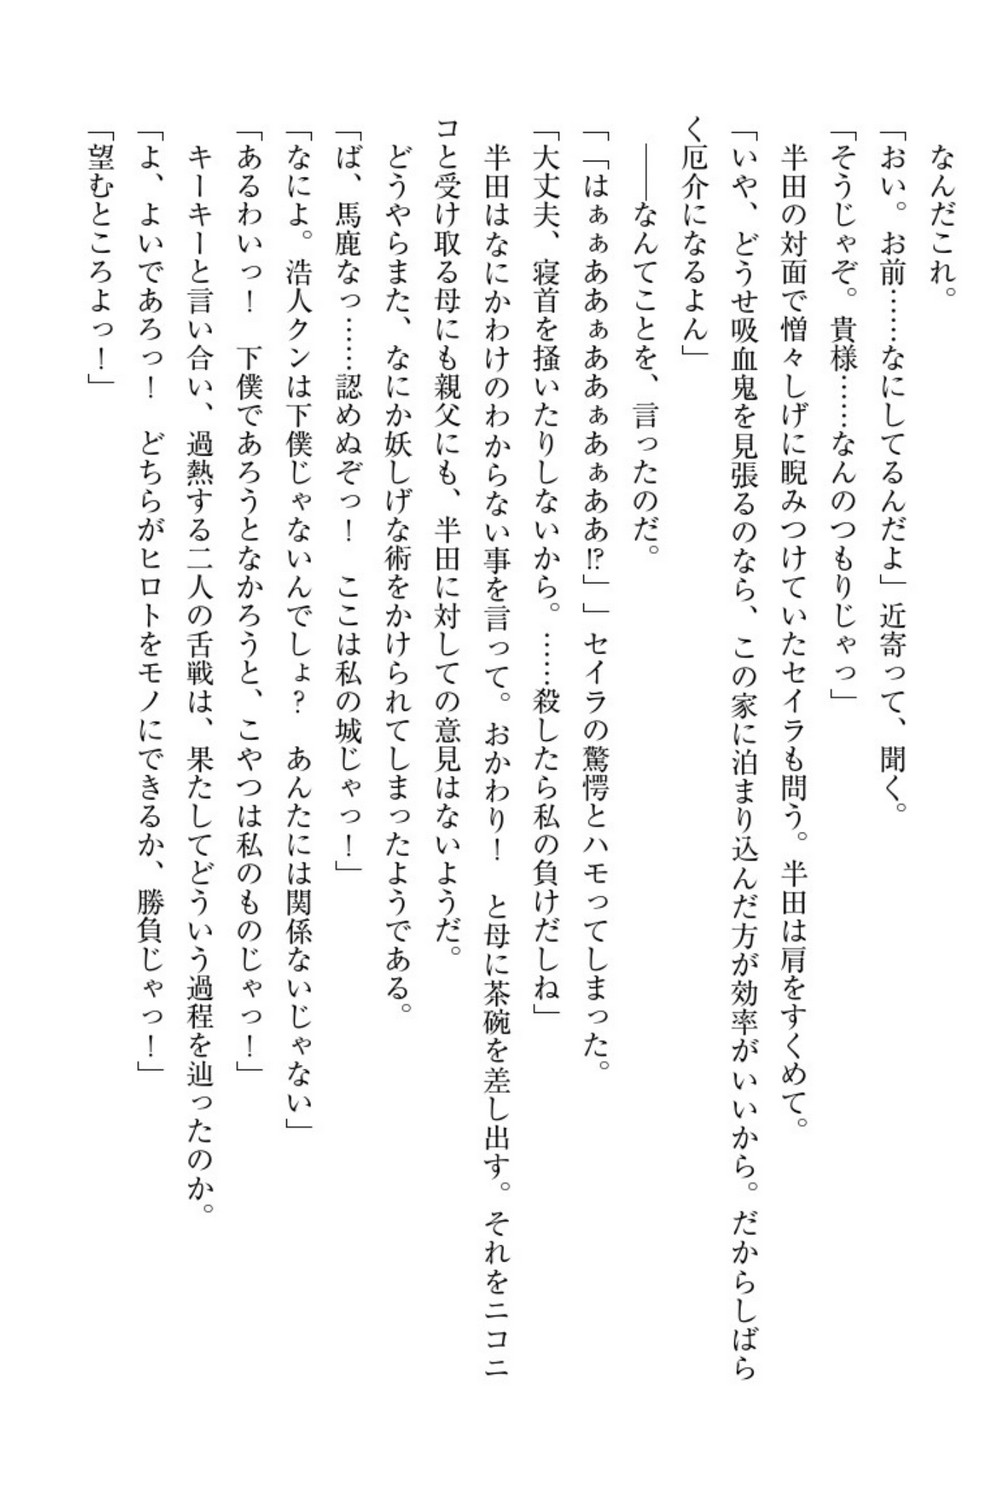 なんだこれ。
「おい。お前……なにしてるんだよ」近寄って、聞く。
「そうじゃぞ。貴様……なんのつもりじゃっ」
　半田の対面で憎々しげに睨みつけていたセイラも問う。半田は肩をすくめて。
「いや、どうせ吸血鬼を見張るのなら、この家に泊まり込んだ方が効率がいいから。だからしばら
く厄介になるよん」
　――なんてことを、言ったのだ。
「「はぁぁああぁああぁあぁああ⁉」」セイラの驚愕とハモってしまった。
「大丈夫、寝首を掻いたりしないから。……殺したら私の負けだしね」
　半田はなにかわけのわからない事を言って。おかわり！　と母に茶碗を差し出す。それをニコニ
コと受け取る母にも親父にも、半田に対しての意見はないようだ。
　どうやらまた、なにか妖しげな術をかけられてしまったようである。
「ば、馬鹿なっ……認めぬぞっ！　ここは私の城じゃっ！」
「なによ。浩人クンは下僕じゃないんでしょ？　あんたには関係ないじゃない」
「あるわいっ！　下僕であろうとなかろうと、こやつは私のものじゃっ！」
　キーキーと言い合い、過熱する二人の舌戦は、果たしてどういう過程を辿ったのか。
「よ、よいであろっ！　どちらがヒロトをモノにできるか、勝負じゃっ！」
「望むところよっ！」